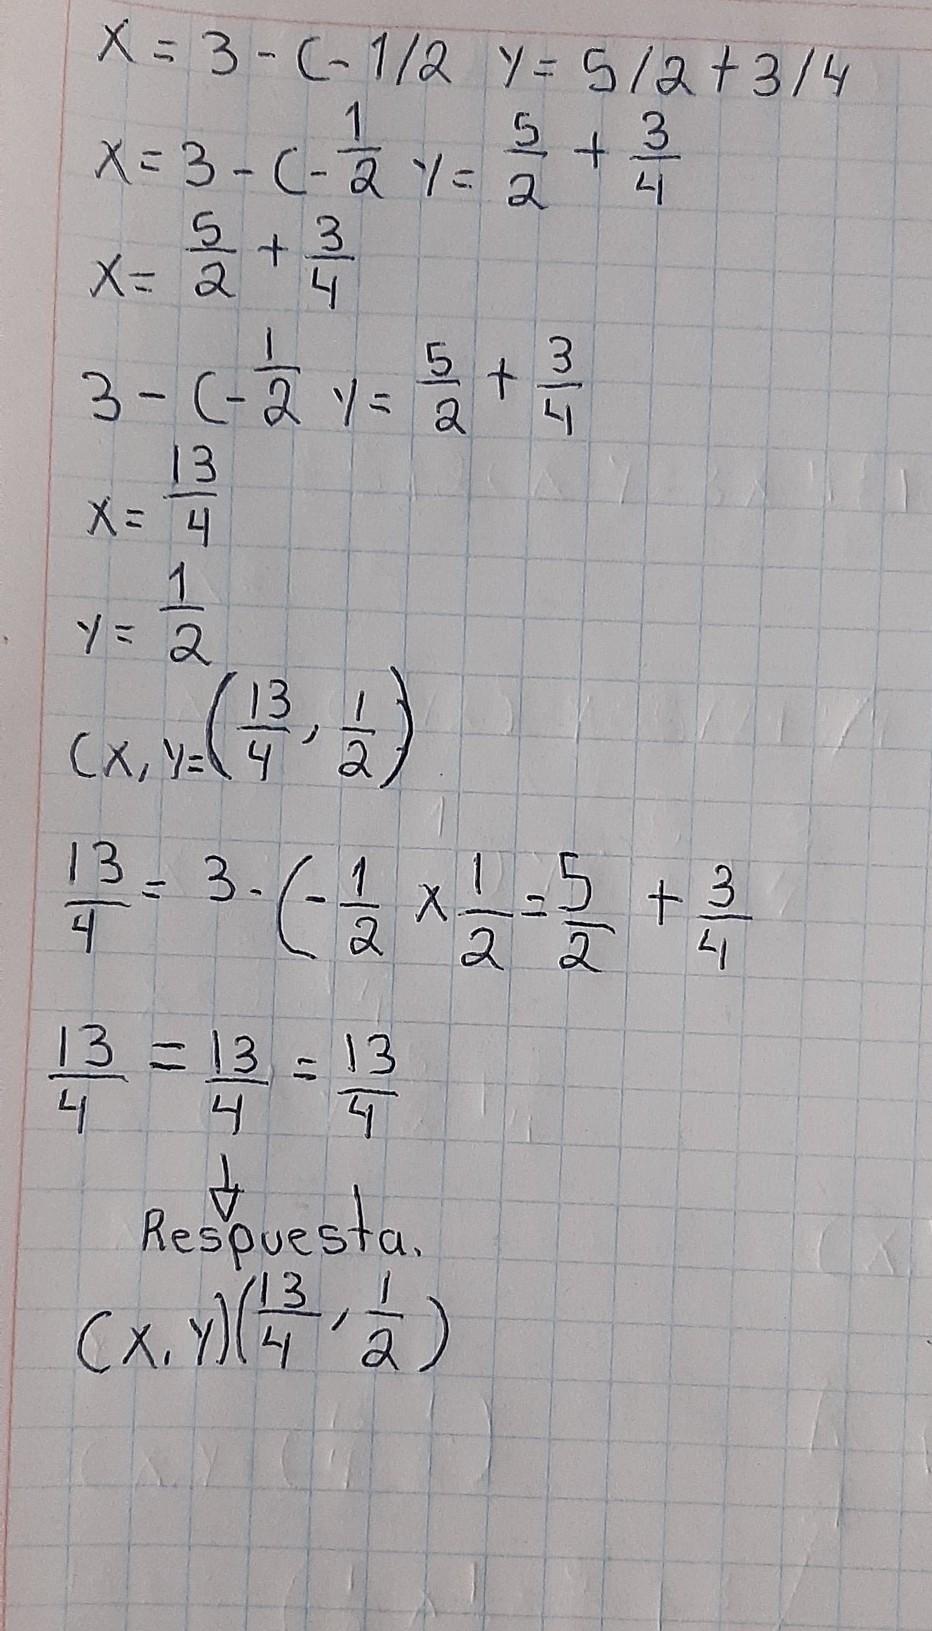 X = 3 - (- 1/2 Y = 5/2 + 3/4
X = 3 - (- 1/2 Y = 5/2 + 3/4
X = 5/2 + 3/4
3 - (- 1/2 Y = 5/2 + 3/4
X = 13/4
Y = 1/2
(X, Y = (13/4, 1/2)
13/4 = 3 - (- 1/2 x 1/2 = 5/2 + 3/4
13/4 = 13/4 = 13/4
Respuesta.
(X, Y) (13/4, 1/2)